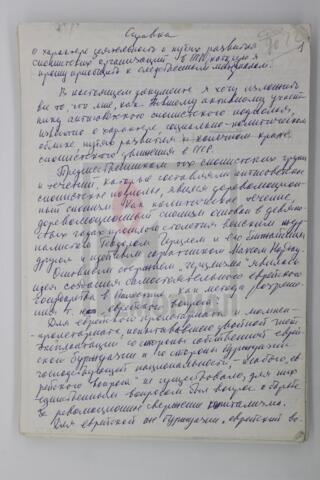 Справка
о характере деятельности и путях развития
сионистских организаций в ТПР, которую я
прошу приобщить к следственным материалам.
В настоящем документе я хочу изложить
все то, что мне, как бывшему активному участ-
нику антисоветского сионистского подполья,
известно о характере, социально-политическом
облике, путях развития и конечном крахе
сионистского движения в ТПР.
Предшественником тех сионистских групп
и течений, которые составляли антисоветское
сионистское подполье, явился дореволюцион-
ный сионизм. Как политическое течение,
дореволюционный сионизм основан в девяно-
стых годах прошлого столетия венским жур-
налистом Теодором Герцлем и его ближайшим
другом и идейным соратником Максом Нордау.
Основным стержнем "герцлизма" являлась
идея создания самостоятельного еврейского
государства в Палестине, как метода разреше-
ния т. н. еврейского вопроса.
Для еврейского пролетариата и полу-
пролетариата, испытывавшего двойной гнет
эксплоатации со стороны собственной еврей-
ской буржуазии и со стороны буржуазии
господствующей национальности, "особого, ев-
рейского вопроса" не существовало, для них
единственным вопросом был вопрос о борьбе
за революционное свержение капитализма.
Для еврейской же буржуазии, еврейский во-